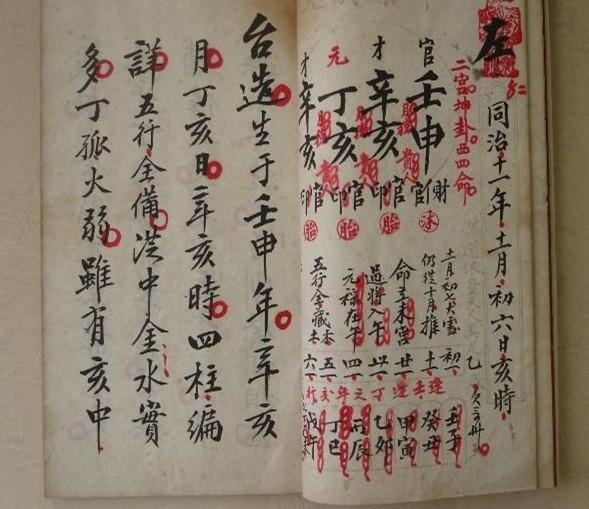 左
同治十一年十一月初六日亥時
二宮坤卦西四命
官壬申 財官印 沐
才辛亥 官印 胎
元丁亥 官印 胎
才辛亥 官印
十一月初七大雪
仍從十月推
命立未宮
過將入午
元祿在午
五行全藏
初一 壬子
十一 癸丑
廿一 甲寅
卅一 乙卯
四一 丙辰
五一 丁巳
六一 戊午
台造生于壬申年辛亥
月丁亥日辛亥時四柱編
詳五行全備洪中金水實
多丁孤火弱雖有亥中